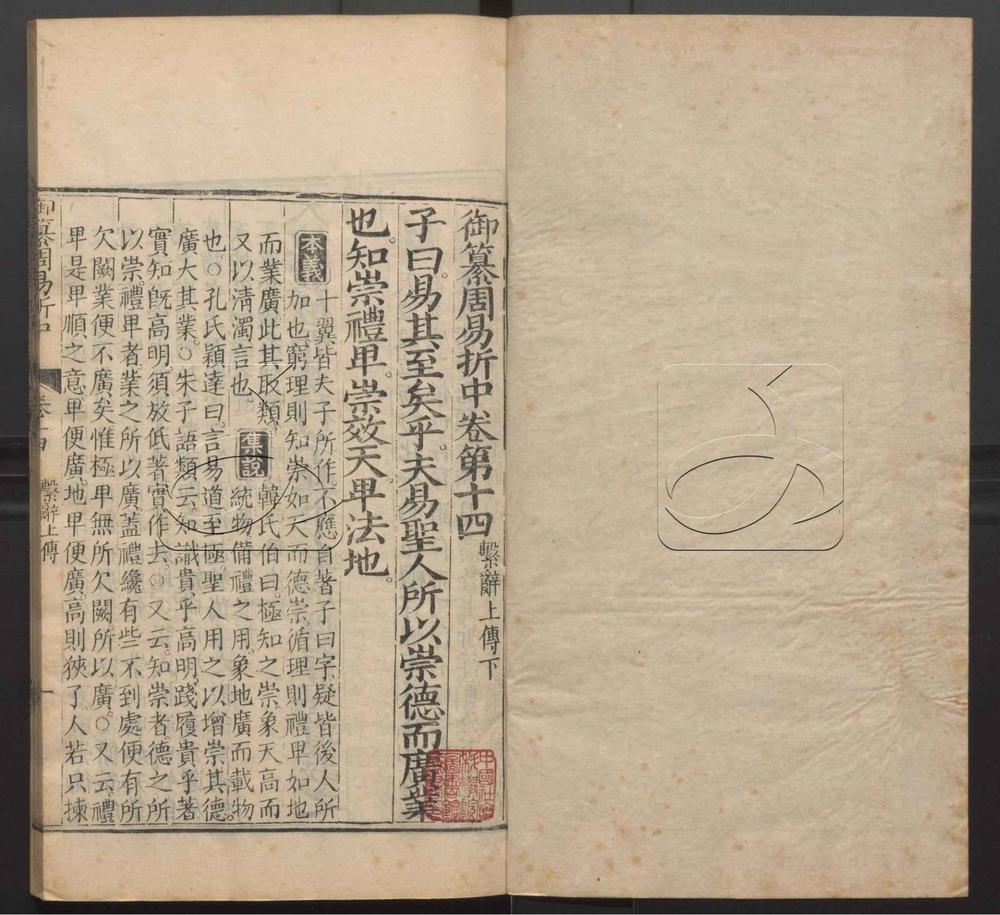 御纂周易折中卷第十四 繫辭上傳下
子曰。易其至矣乎。夫易聖人所以崇德而廣業
也。知崇禮卑。崇效天。卑法地。
本義 十翼皆夫子所作。不應自著子曰字。疑皆後人所
加也。窮理則知崇如天而德崇。循理則禮卑如地
而業廣。此其取類。
又以清濁言也。 集說 韓氏伯曰。極知之崇。象天高而
統物。備禮之用。象地廣而載物
也。○孔氏穎達曰。言易道至極。聖人用之以增崇其德。
廣大其業。○朱子語類云。知識貴乎高明。踐履貴乎著
實。知既高明。須放低著實作去。○又云。知崇者德之所
以崇。禮卑者業之所以廣。蓋禮纔有些不到處。便有所
欠闕。業便不廣矣。惟極卑無所欠闕。所以廣。○又云。禮
卑是卑順之意。卑便廣。地卑便廣。高則狹了。人若只揀
御纂周易折中 卷十四 繫辭上傳 一